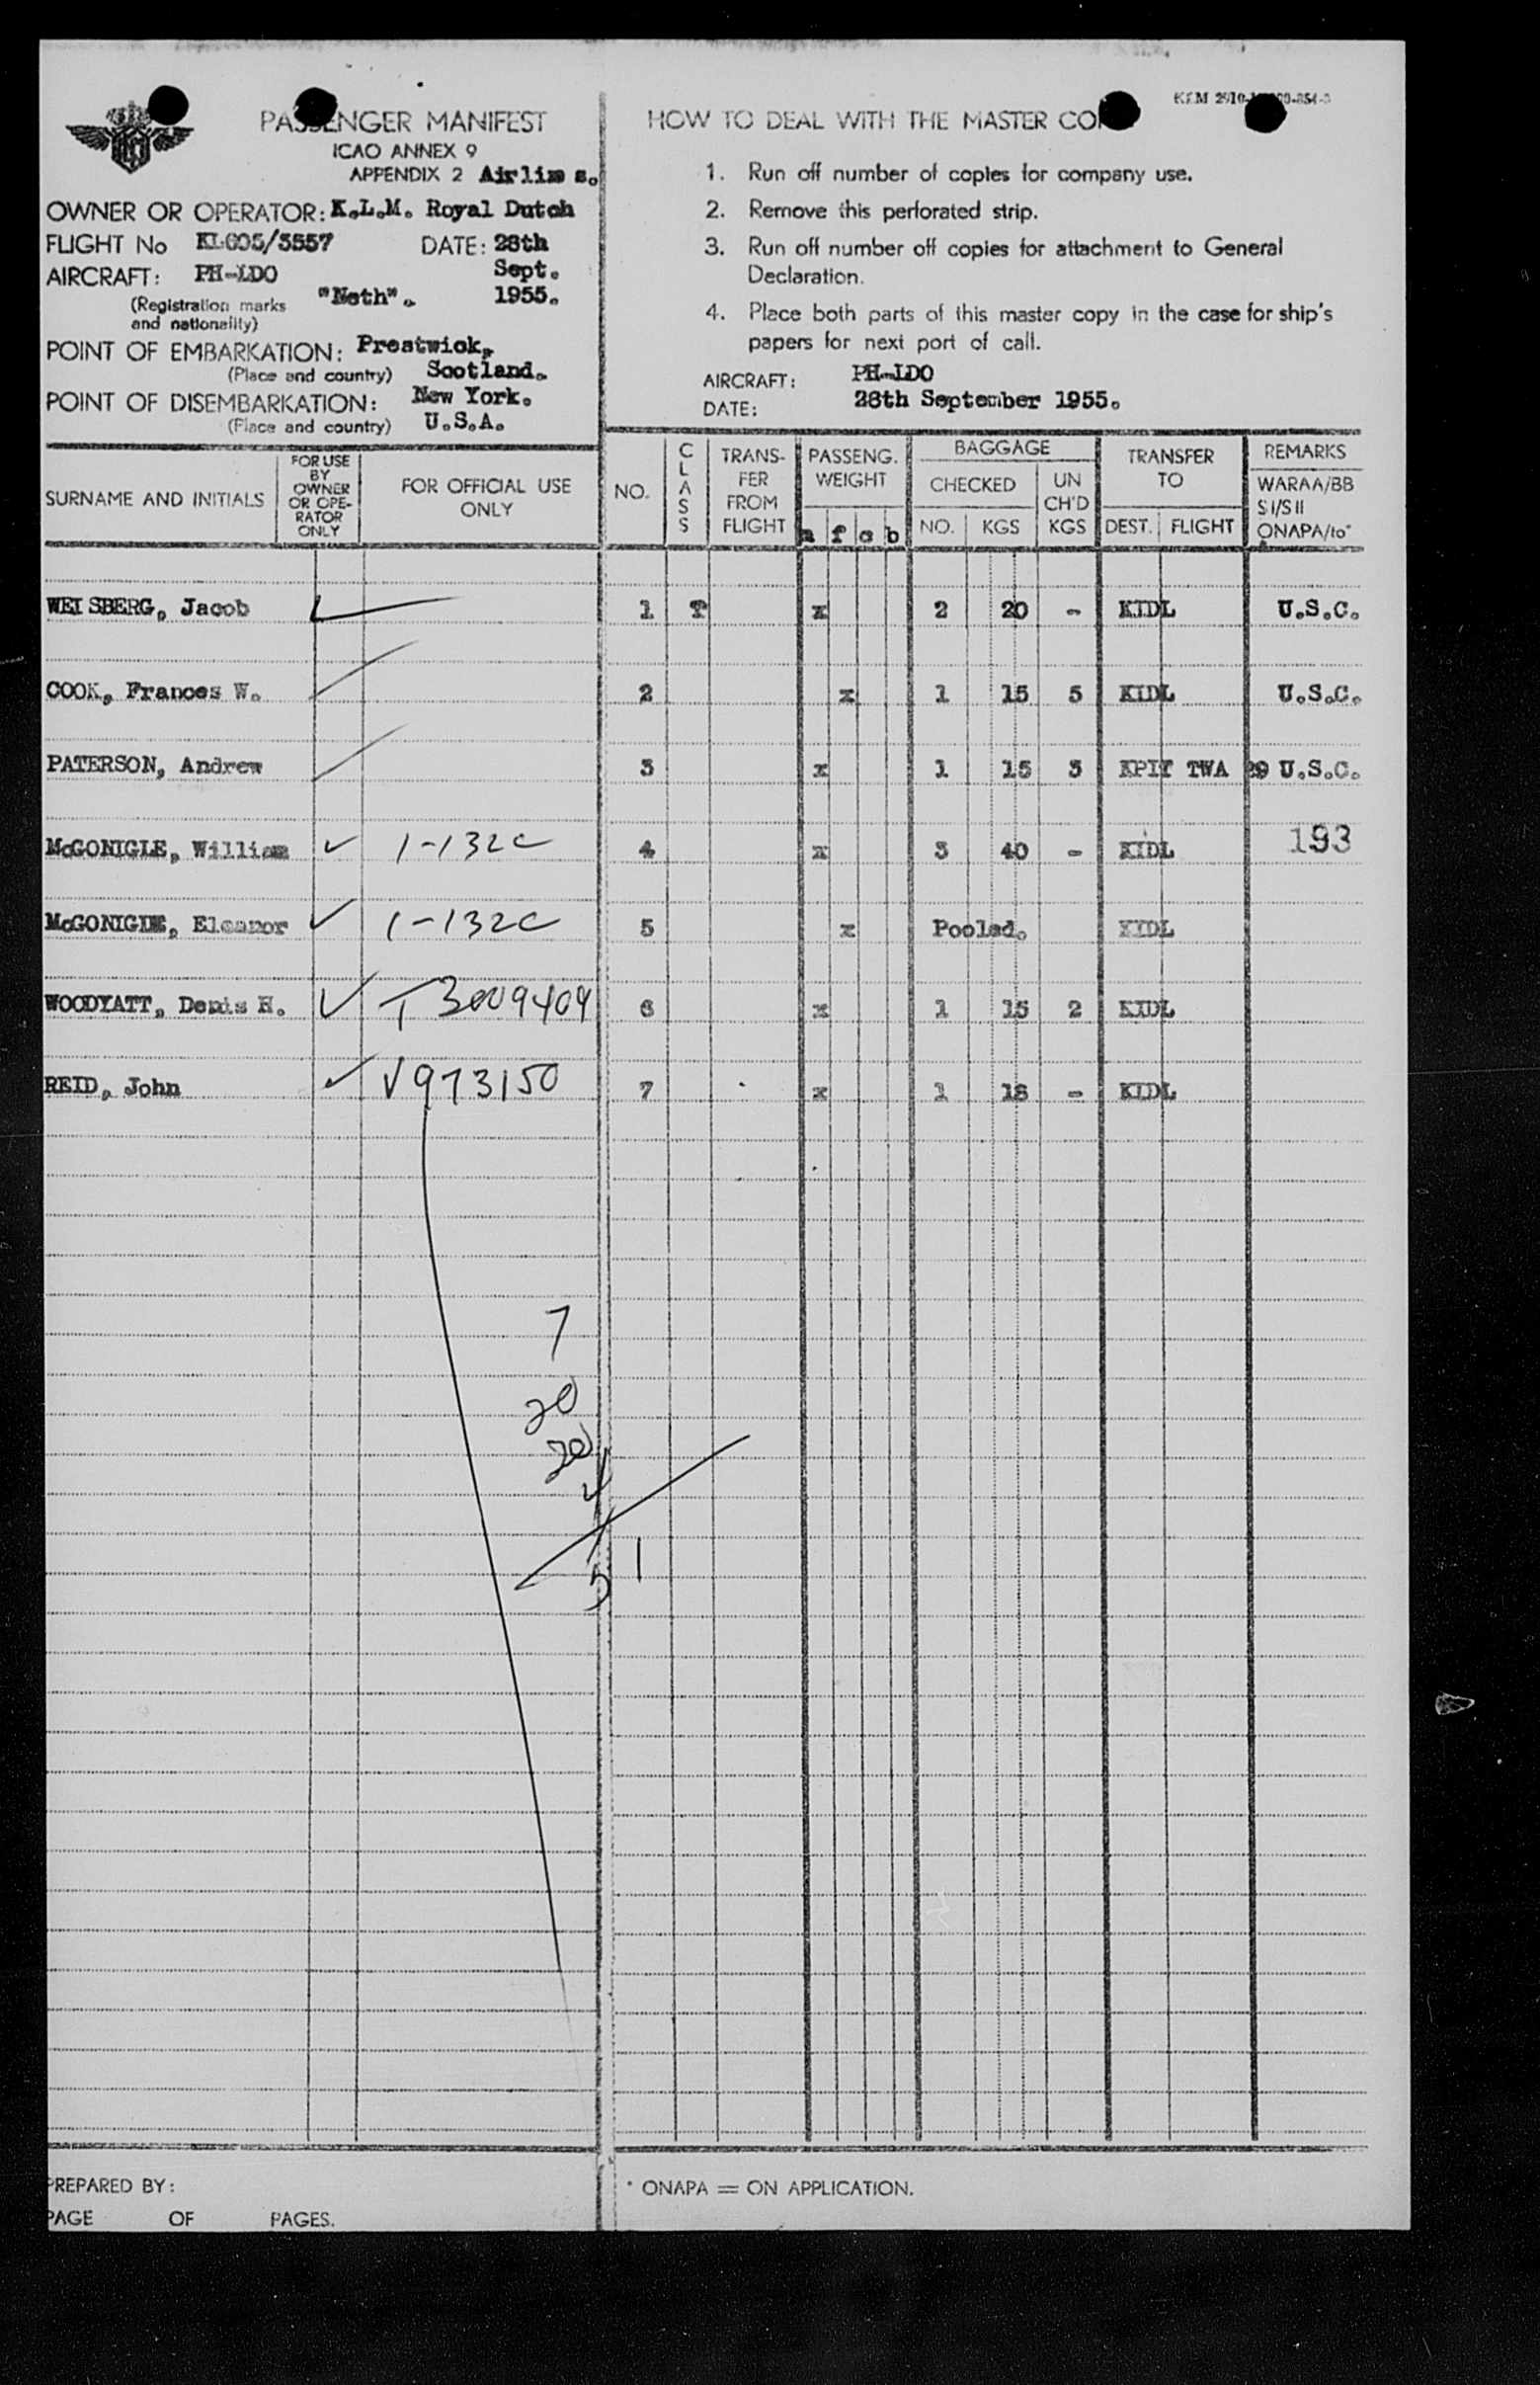 PASSENGER MANIFEST
ICAO ANNEX 9
APPENDIX 2 Airlines.
OWNER OR OPERATOR: K.L.M. Royal Dutch
FLIGHT No DATE: 28th
Sept.
AIRCRAFT: PH-LDO
(Registration marks "Neth". 1955.
and nationality)
POINT OF EMBARKATION: Prestwick,
(Place and country) Scotland.
POINT OF DISEMBARKATION: New York.
(Place and country) U.S.A.
HOW TO DEAL WITH THE MASTER
1. Run off number of copies for company use.
2. Remove this perforated strip.
3. Run off number off copies for attachment to General
Declaration.
4. Place both parts of this master copy in the case for ship's
papers for next port of call.
AIRCRAFT: PH-LDO
DATE: 28th September 1955.
SURNAME AND INITIALS
FOR USE
BY
OWNER
OR OPE-
RATOR
ONLY
FOR OFFICIAL USE
ONLY
NO.
CLASS
TRANS-
FER
FROM
FLIGHT
PASSENG.
WEIGHT
a f c b
BAGGAGE
CHECKED
NO. KGS
UN
CH'D
KGS
TRANSFER
TO
DEST. FLIGHT
REMARKS
WARAA/BB
SI/SII
ONAPA/to*
WEISBERG, Jacob 1 T x 2 20 - KIDL U.S.C.
COOK, Frances W. 2 x 1 15 5 KIDL U.S.C.
PATERSON, Andrew 3 x 1 15 3 KPIT TWA 29 U.S.C.
McGONIGLE, William ✓ 1-132C 4 x 3 40 - KIDL 193
McGONIGLE, Eleanor ✓ 1-132C 5 x Pooled. KIDL
WOODYATT, Denis H. ✓ T 3009409 6 x 1 15 2 KIDL
REID, John ✓ V973150 7 x 1 18 - KIDL
7
20
20
4
51
PREPARED BY:
PAGE OF PAGES.
* ONAPA = ON APPLICATION.